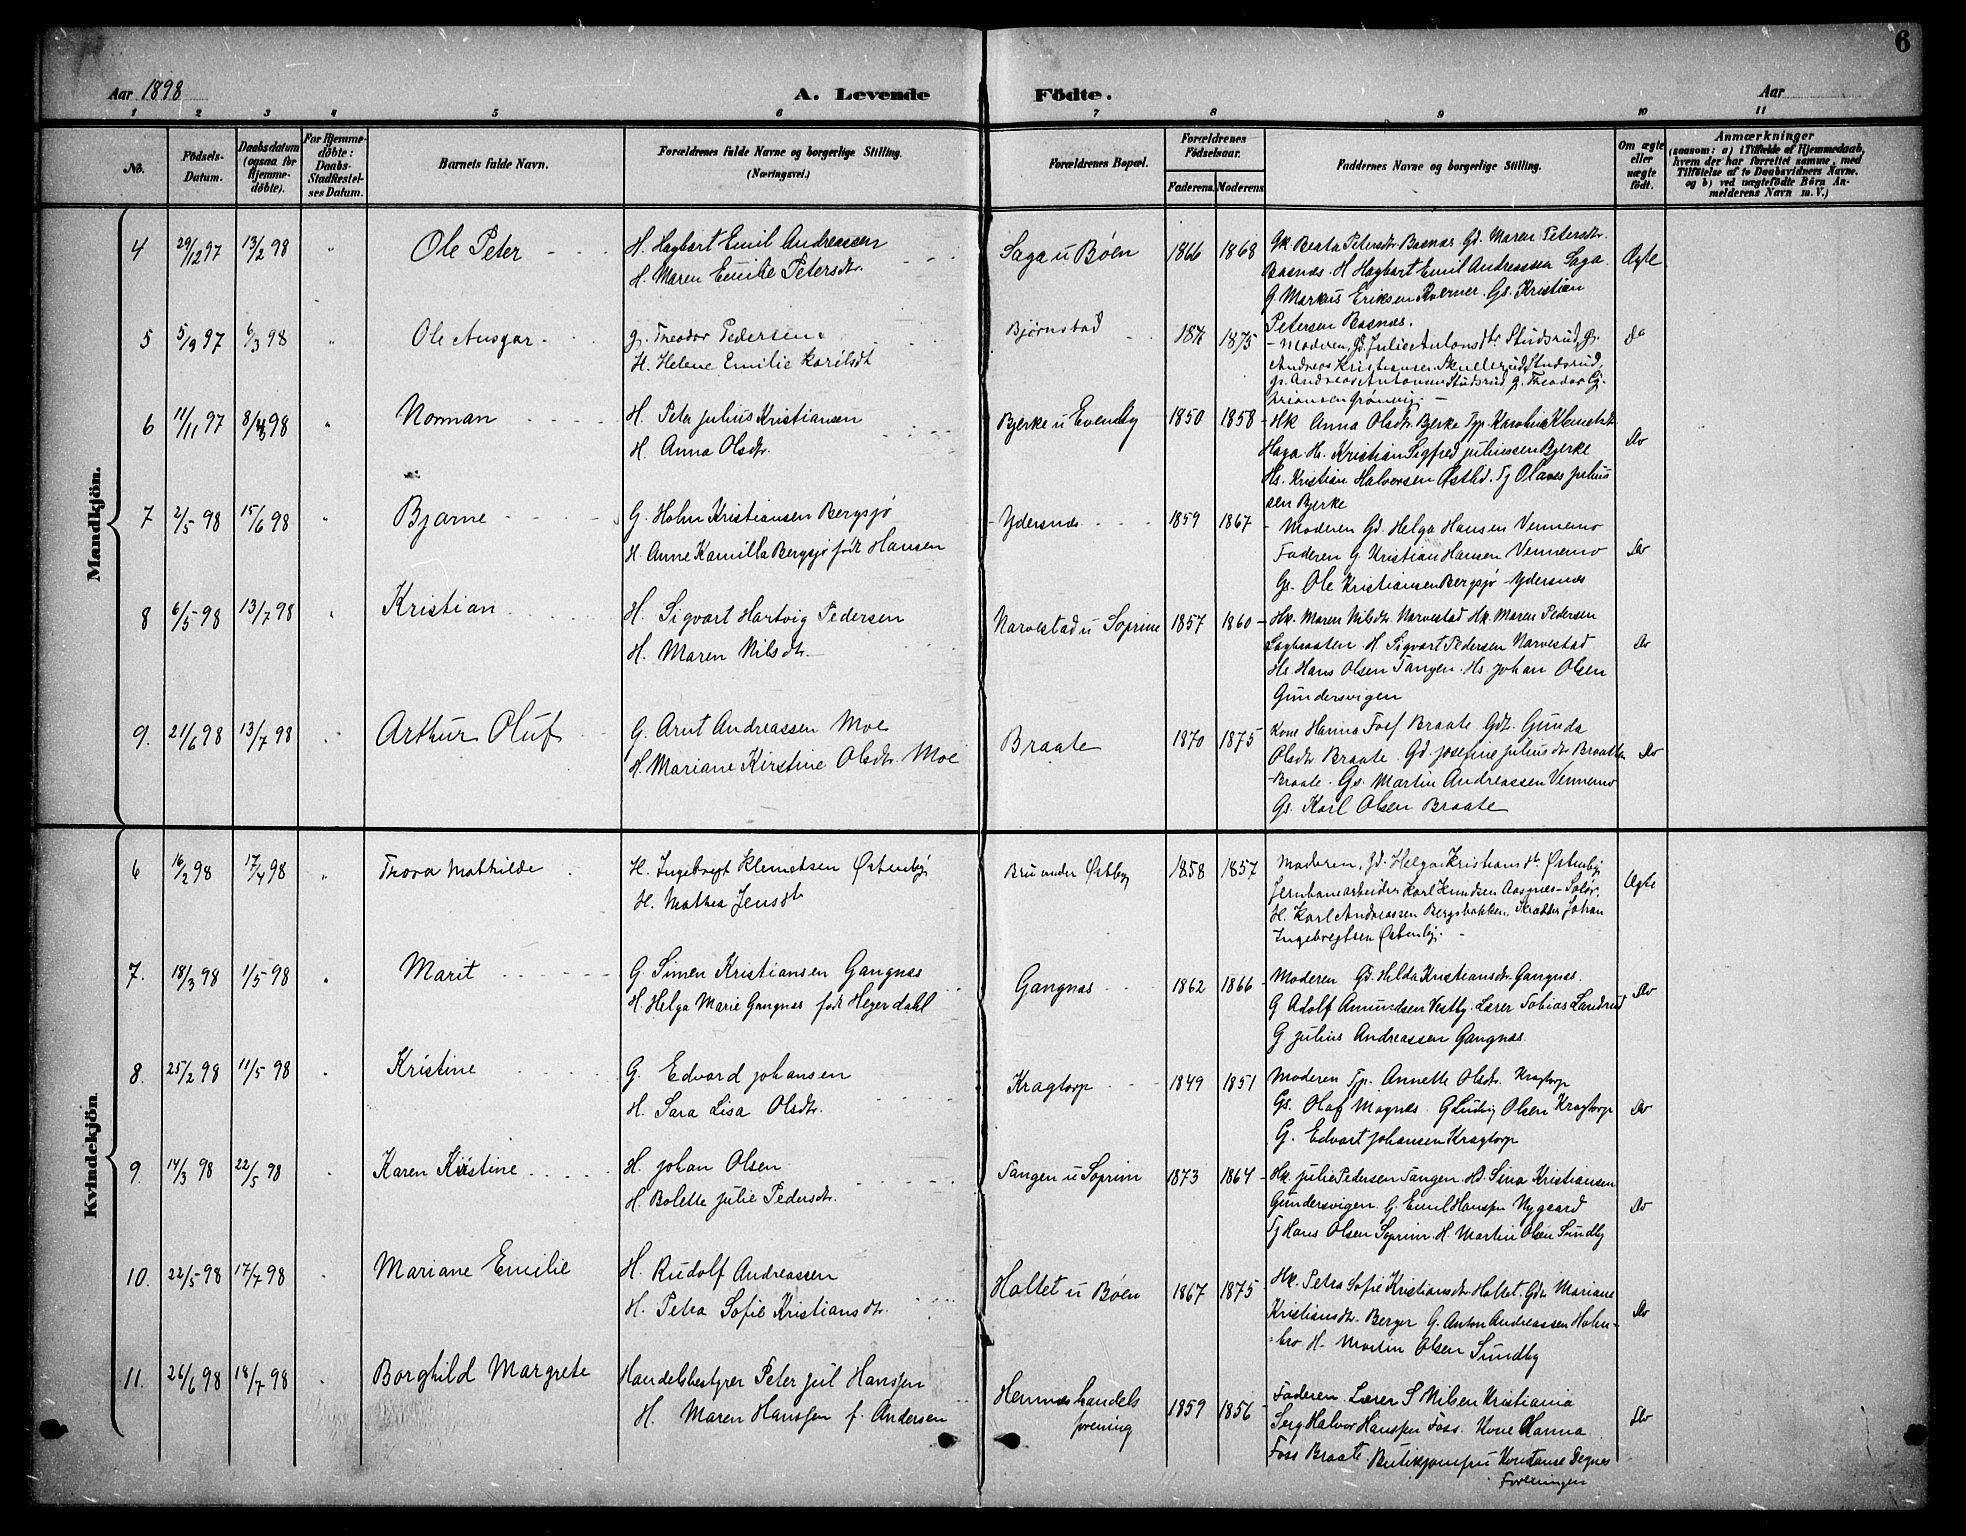 6
Aar 1898 A. Levende Födte. Aar
1 2 3 4 5 6 7 8 9 10 11
No.
Födsels-Datum.
Daabsdatum (ogsaa for Hjemmedöbte).
For Hjemmedöbte: Daabs-Stadfæstelses Datum.
Barnets fulde Navn.
Forældrenes fulde Navne og borgerlige Stilling. (Næringsvei.)
Forældrenes Bopæl.
Forældrenes Födselsaar.
Faderens. Moderens.
Faddernes Navne og borgerlige Stilling.
Om ægte eller uægte födt.
Anmærkninger
(saasom: a) i Tilfælde af Hjemmedaab, hvem der har forrettet samme, med Tilföielse af to Daabsvidners Navne. og b) ved uægtefödte Börn Anmelderens Navn m. V.)
Mandkjön.
4 29/12 97 13/2 98 " Ole Peter
H. Hagbart Emil Andreassen
H. Maren Emilie Petersdtr.
Saga u Bøen 1866 1868
Gk. Beata Petersdtr. Basnæs Gd. Maren Petersdtr.
Basnæs. H Hagbart Emil Andreassen Saga
G. Markus Eriksen Kverner. Gs. Kristian
Petersen Basnæs.
Ægte
5 5/9 97 6/3 98 " Ole Ansgar
g. Theodor Pedersen
H. Helene Emilie Karilsdt
Bjørnstad 1875
- Moderen, Gd. Julie Antonsdtr Studsrud, gs.
Andreas Kristiansen Skullerud Studsrud,
gs. Andreas Antonsen Studsrud g. Theodor
Do
6 11/11 97 98 " Norman
H. Peter Julius Kristiansen
H. Anna Olsdtr.
Bjerke u Evenby 1850 1858
- Hk Anna Olsdtr. Bjerke Tp. Karoline Klemetsdt
Haga Hs. Kristian Sigfred Juliussen Bjerke
Hs. Kristian Halvorsen Østbd. Tj Olaves Julius
sen Bjerke
Do
7 2/5 98 15/6 98 " Bjarne
G. Holm Kristiansen Bergsjø
H. Anne Kamilla Bergsjø født Hansen
- Ydersnes 1859 1867
- Moderen Gd. Helga Hansen Vennemo
Faderen G Kristian Hansen Vennemo
Gs. Ole Kristiansen Bergsjø - Ydersnæs
Do
8 6/5 98 13/7 98 " Kristian
H. Sigvart Hartvig Pedersen
H. Maren Nilsdtr
Narvestad u Soprim 1857 1860
- Hk. Maren Nilsdtr. Narvestad Hk. Maren Pedersen
Sagbraaten. H Sigvart Pedersen Narvestad
Hs Hans Olsen Tangen. Hs. Johan Olsen
Gundersvigen
Do
9. 21/6 98 13/7 98 Arthur Oluf
G. Arnt Andreassen Moe
H. Mariane Kirstine Olsdtr. Moe
Braate 1870 1875
Kone Hanna Foss Braate Gdt. Gunda
Olsdtr Braate. Gd. Josefine Juliusdtr Braathe
- Braate. Gs. Martin Andreassen Vennemo
Gs. Karl Olsen Braate
Do
Kvindekjön.
6 16/2 98 17/4 98 " Thora Mathilde
H. Ingebregt Klemetsen Østenby
H. Mathea Jensdt
Bru under Østby 1858 1857
Moderen, Gd. Helga Kristiansdtr. Østenby
Jernbanearbeider Karl Knudsen Aasnæs - Solør.
H. Karl Andreassen Bergsbakken. Skrædder Johan
Ingebregtsen Østenby. -
Ægte
7. 18/3 98 1/5 98 Marit
G Simen Kristiansen Gangnæs
H Helga Marie Gangnæs født Heyerdahl
Gangnæs 1862 1866
- Moderen Gd. Helda Kristiansdtr. Gangnæs
G Adolf Amundsen Vestby. Lærer Tobias Landrud
G Julius Andreassen Gangnæs.
Do
8. 25/2 98 11/5 98 Kristine
G. Edvard Johansen
H. Sara Lisa Olsdtr.
Kragtorp 1849 1851
- Moderen Tp. Annette Olsdtr. Kragtorp
Gs. Olaf Magnæs. G Ludvig Olsen Kragtorp
G. Edvart Johansen Kragtorp
Do
9. 14/3 98 22/5 98 Karen Kristine
H. Johan Olsen
H. Bolette Julie Pedersdtr.
Tangen u Soprim 1873 1864
- Hk. Julie Pedersen Tangen Hd. Sina Kristiansen
Gundersvigen G. Emil Hanssen Nygaard
Tj Hans Olsen Soprim. H. Martin Olsen Sundby
Do
10. 22/5 98 17/7 98 Mariane Emilie
H. Rudolf Andreassen
H. Petra Sofie Kristiansdtr.
Holtet u Bøen 1867 1875
- Hk. Petra Sofie Kristiansdtr. Holtet. Gdt Mariane
Kristiansdtr. Berger G. Anton Andreassen Holm-
=bro H. Martin Olsen Sundby
Do
11. 26/6 98 18/7 98 Borghild Margrete
Handelsbestyrer Peter Jul Hanssen
H. Maren Hanssen f. Andersen
Hemnes handels
forening
1859 1856
- Faderen. Lærer S Nilsen Kristiania
Serg Halvor Hanssen Foss. Kone Hanna
Foss Braate. Butikjomfru Konstanse Degnes
Foreningen
Do